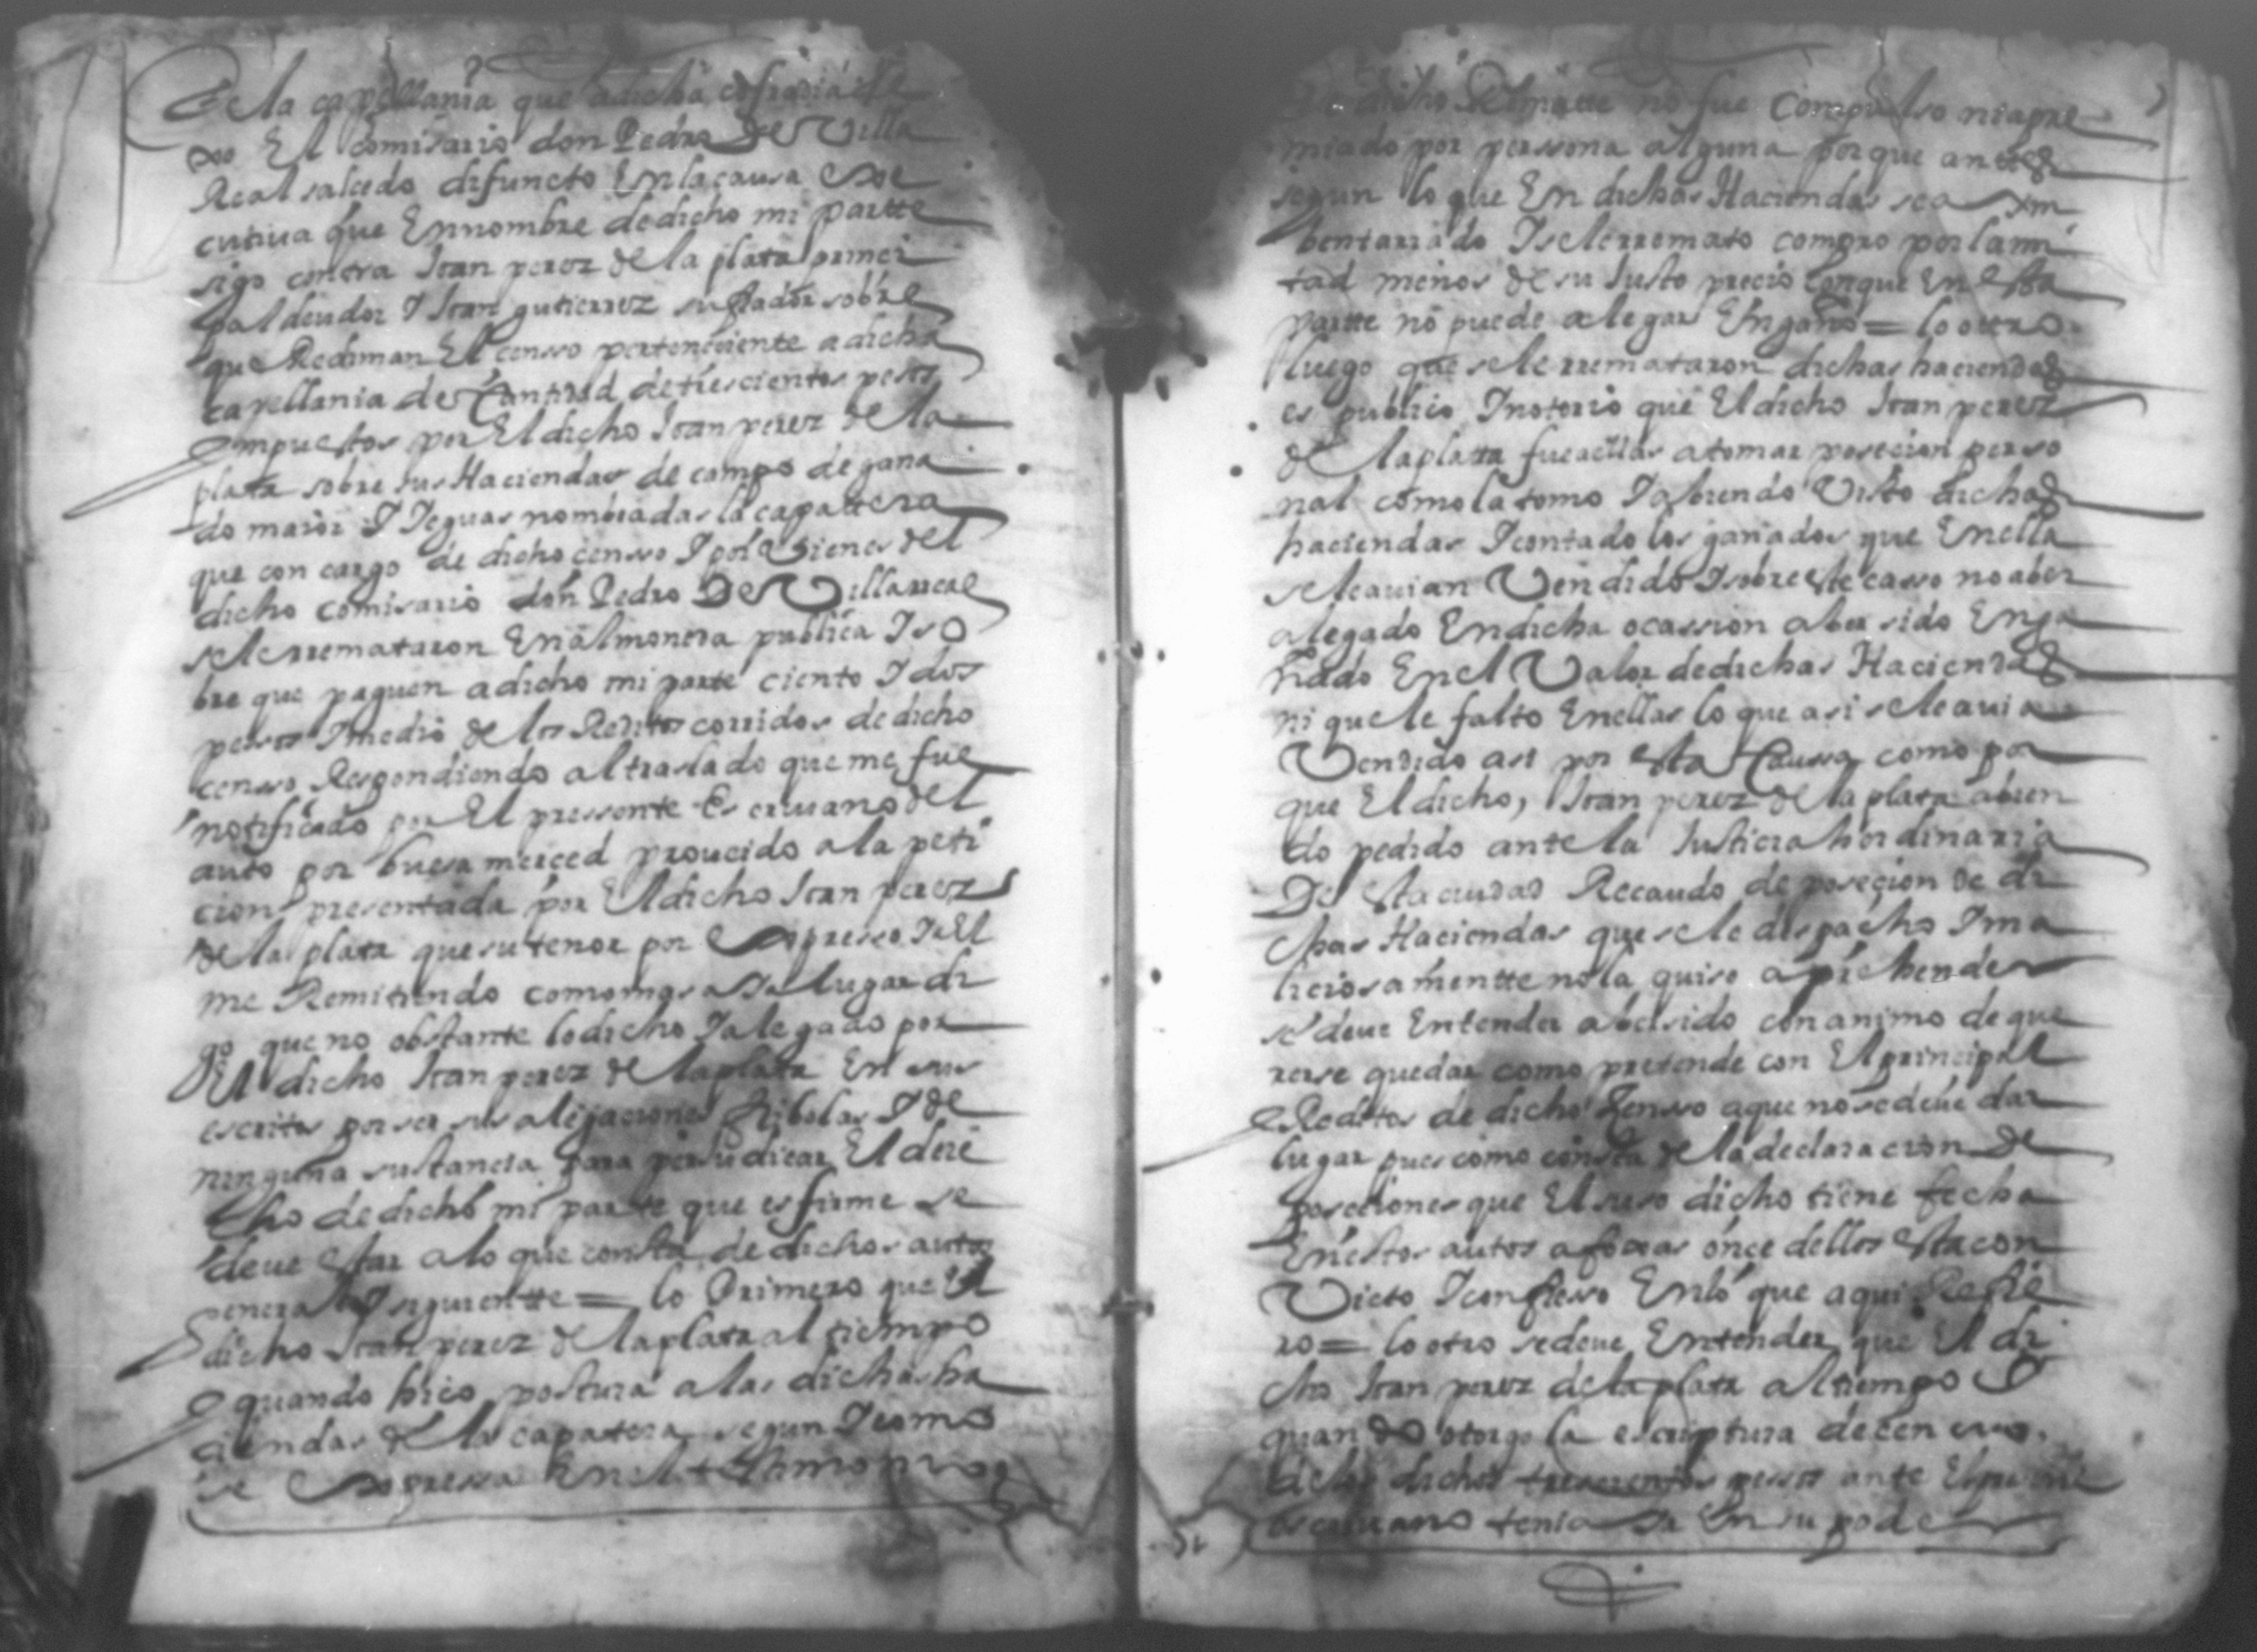 de la capellania que a dicha cofradia de
xo El comisario don Pedro de Villa
Real salcedo difuncto En la causa exe
cutiua que En nombre de dicho mi partte
sigo contra Joan perez de la plata princi
pal deudor I Joan gutierrez su fiador sobre
que Rediman El censso perteneciente a dicha
capellania de Cantidad de trescientos pesos
ympuestos por El dicho Joan perez de la
plata sobre sus Haciendas de campo de gana
do maior I Ieguas nombradas la capattera
que con cargo de dicho censso I por Vienes del
dicho comisario don Pedro De Villarreal
se le rremataron En almoneda publica I so
bre que paguen a dicho mi parte ciento I dos
pesos I medio de los Reditos corridos de dicho
censso Respondiendo al traslado que me fue
notificado por El pressente Escriuano del
auto por buesa merced proueido a la peti
cion presentada por El dicho Joan perez
de la plata que su tenor por Expresso I a El
me Remitiendo como mas aia lugar di
go que no obstante lo dicho I alegado por
El dicho Joan perez de la plata En sus
escritos por ser sus alegaciones fribolas I de
ninguna sustancia para perjudicar El dere
cho de dicho mi parte que es firme se
deue estar a lo que consta de dichos autos
y siguientte = lo Primero que El
dicho Joan perez de la plata al tiempo
y quando hiço postura a las dichas ha
ciendas de la capatera segun I como
se Expressa En el testamonio
dicho Rematte no fue Compulso ni apre
miado por perssona alguna porque antes
segun lo que En dichas Haciendas se a ym
bentariado I se le rremato compro por la mi
tad menos de su Justo precio conque En esta
partte no puede alegar Engaño = lo otro
luego que se le rremataron dichas haciendas
es publico I notorio que El dicho Joan perez
de la platta fue a ellas a tomar posecion perso
nal como la tomo I abiendo Visto dichas
haciendas I contado los ganados que En ella
se le auian Vendido I sobre este casso no aber
alegado En dicha ocassion aber sido Enga
ñado En el Valor de dichas Haciendas
ni que le falto En ellas lo que asi se le auia
Vendido asi por esta Caussa como por
que El dicho, Joan perez de la plata abien
do pedido ante la Justicia hordinaria
De esta ciudad Recaudo de poseçion de di
chas Haciendas que se le dispacho I ma
liciosamentte no la quiso aprehender
se deue Entender aber sido con animo de que
rerse quedar como pretende con El principal
y Reditos de dicho Zensso a que no se deue dar
lugar pues como consta de la declaracion de
posiciones que El suso dicho tiene fecha
En estos autos a foxas onçe dellos esta con
Victo I confesso En lo que aqui Refie
ro = lo otro se deue Entender que El di
cho Joan perez de la plata al tiempo I
quando otorgo la escriptura de censso
de los dichos trescientos pesos ante El presente
escriuano tenia ia En su poder